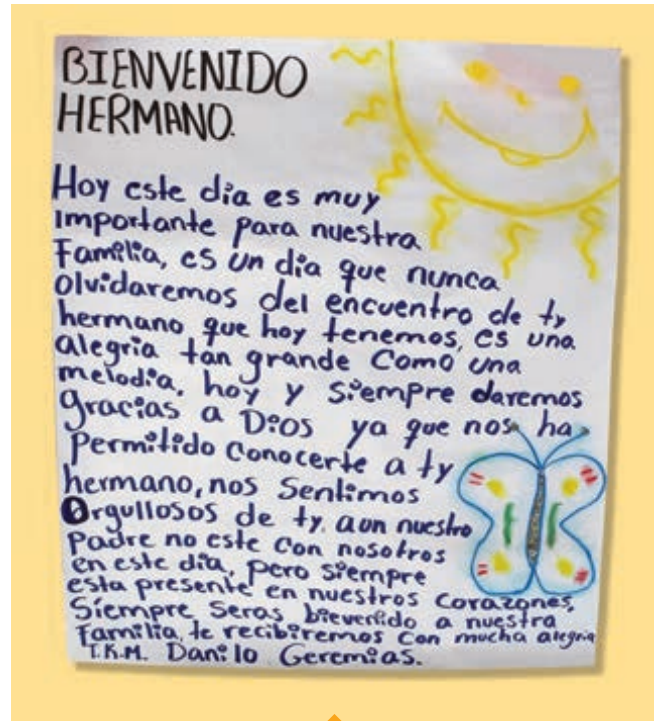 BIENVENIDO
HERMANO.
Hoy este dia es muy
importante para nuestra
Familia, es un dia que nunca
olvidaremos del encuentro de ty
hermano que hoy tenemos, es una
alegria tan grande Como una
melodia, hoy y siempre daremos
gracias a Dios ya que nos ha
Permitido conocerte a ty
hermano, nos Sentimos
Orgullosos de ty. aun nuestro
Padre no este con nosotros
en este dia, pero siempre
esta presente en nuestros corazones,
Siempre Seras bievenido a nuestra
Familia, te recibiremos con mucha alegria
T.K.M. Danilo Geremias.